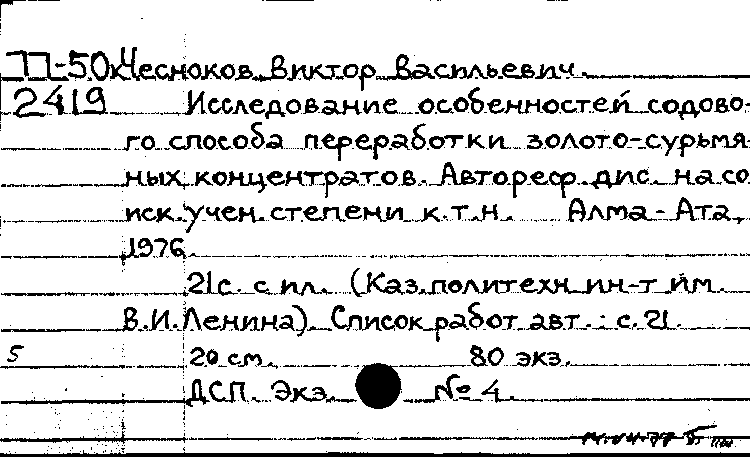 П-50к Чесноков Виктор Васильевич.
2419 Исследование особенностей содово-
го способа переработки золото-сурьмя
ных концентратов. Автореф. дис. на со
иск. учен. степени к.т.н. Алма-Ата,
1976.
21с. с ил. (Каз. политехн ин-т им.
В.И.Ленина). Список работ авт.: с.21.
5 20 см. 80 экз.
ДСП. Экз. № 4.